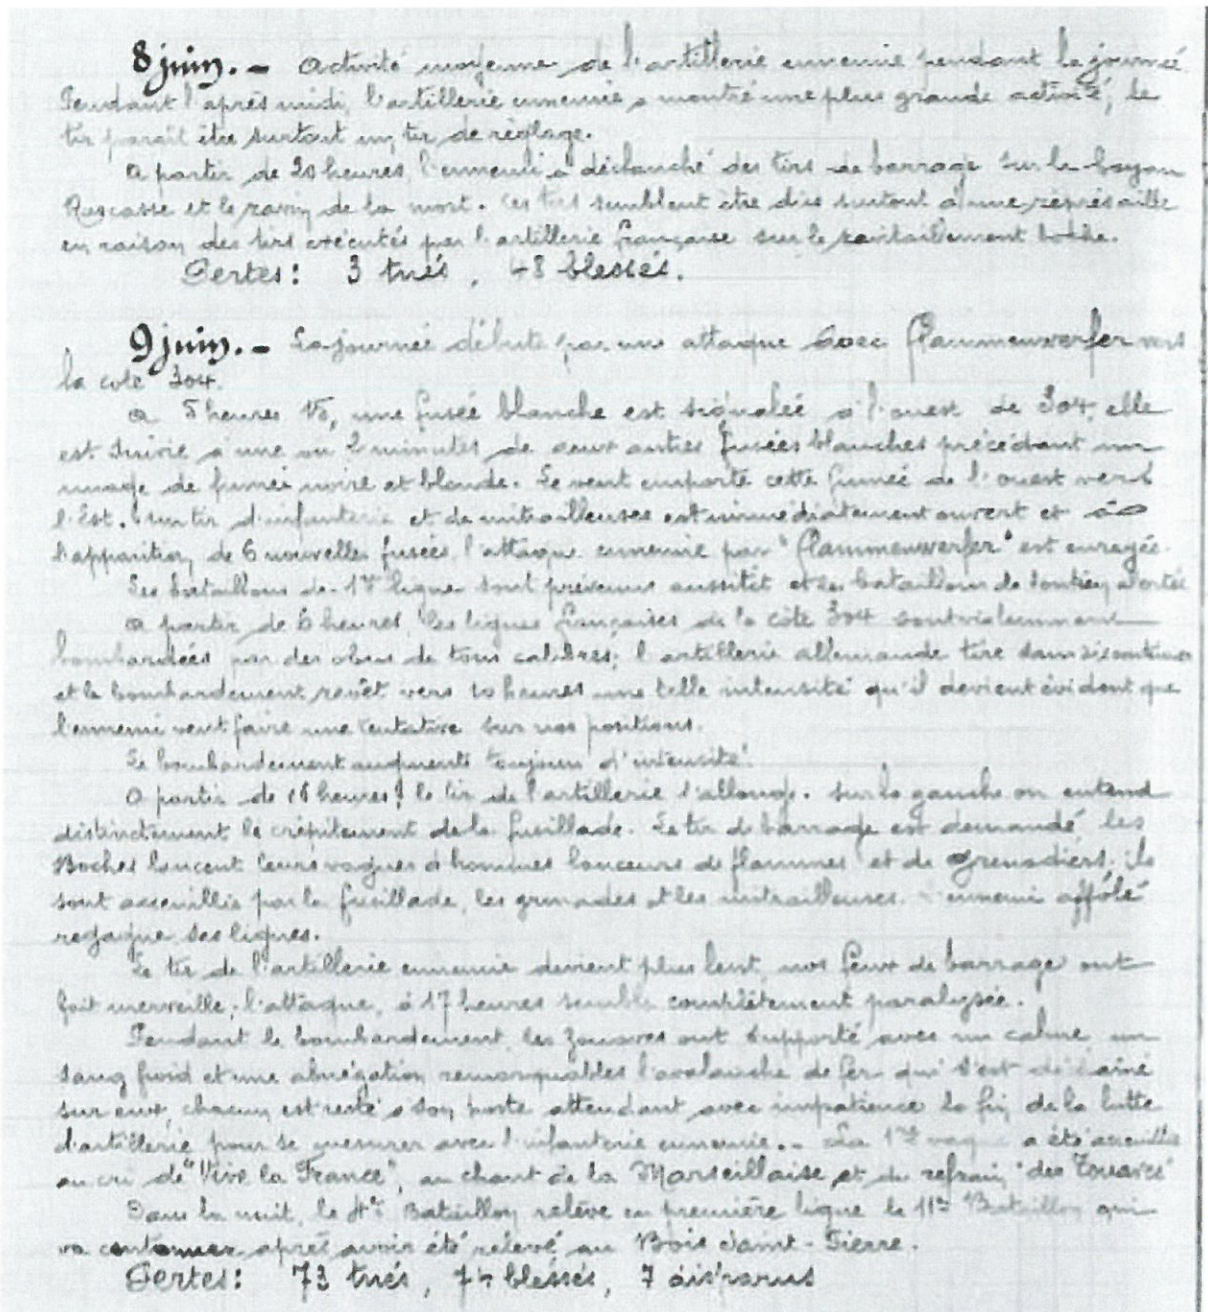 8 juin. - Activité moyenne de l'artillerie ennemie pendant la journée.
Pendant l'après midi, l'artillerie ennemie a montré une plus grande activité, le
tir paraît être surtout un tir de réglage.
A partir de 20 heures, l'ennemi a déclanché des tirs de barrage sur le boyau
Rascasse et le ravin de la mort. Ces tirs semblent être dûs surtout à une représaille
en raison des tirs exécutés par l'artillerie française sur le ravitaillement boche.
Pertes : 3 tués, 48 blessés.
9 juin. - La journée débute par une attaque avec flammenwerfer vers
la cote 304.
A 5 heures 15, une fusée blanche est signalée à l'ouest de 304, elle
est suivie à une ou 2 minutes de deux autres fusées blanches précédant un
nuage de fumée noire et blonde. Le vent emporte cette fumée de l'ouest vers
l'Est. Un tir d'infanterie et de mitrailleuses est immédiatement ouvert et à
l'apparition de 6 nouvelles fusées, l'attaque ennemie par "flammenwerfer" est enrayée.
Les bataillons de 1re ligne sont prévenus aussitôt et les bataillons de soutien alertés
A partir de 6 heures, les lignes françaises de la côte 304 sont violemment
bombardées par des obus de tous calibres; l'artillerie allemande tire sans discontinuer
et le bombardement revêt vers 10 heures une telle intensité qu'il devient évident que
l'ennemi veut faire une tentative sur nos positions.
Le bombardement augmente toujours d'intensité.
A partir de heures, le tir de l'artillerie s'allonge. Sur la gauche on entend
distinctement le crépitement de la fusillade. Le tir de barrage est demandé, les
Boches lancent leurs vagues d'hommes lanceurs de flammes et de grenadiers; ils
sont accueillis par la fusillade, les grenades et les mitrailleuses. L'ennemi affolé
regagne ses lignes.
Le tir de l'artillerie ennemie devient plus lent, nos feux de barrage ont
fait merveille; l'attaque, à 17 heures semble complètement paralysée.
Pendant le bombardement, les zouaves ont supporté avec un calme un
sang froid et une abnégation remarquables l'avalanche de fer qui s'est déchainé
sur eux, chacun est resté à son poste attendant avec impatience la fin de la lutte
d'artillerie pour se mesurer avec l'infanterie ennemie. - La 1re vague a été accueillie
au cri de "Vive la France", au chant de la Marseillaise et du refrain "des Zouaves"
Dans la nuit, le Bataillon relève en première ligne le 11e Bataillon qui
va cantonner après avoir été relevé au Bois Saint-Pierre.
Pertes : 73 tués, blessés, 7 disparus